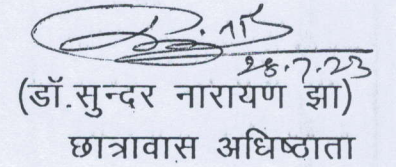 28.7.23
(डॉ.सुन्दर नारायण झा)
छात्रावास अधिष्ठाता